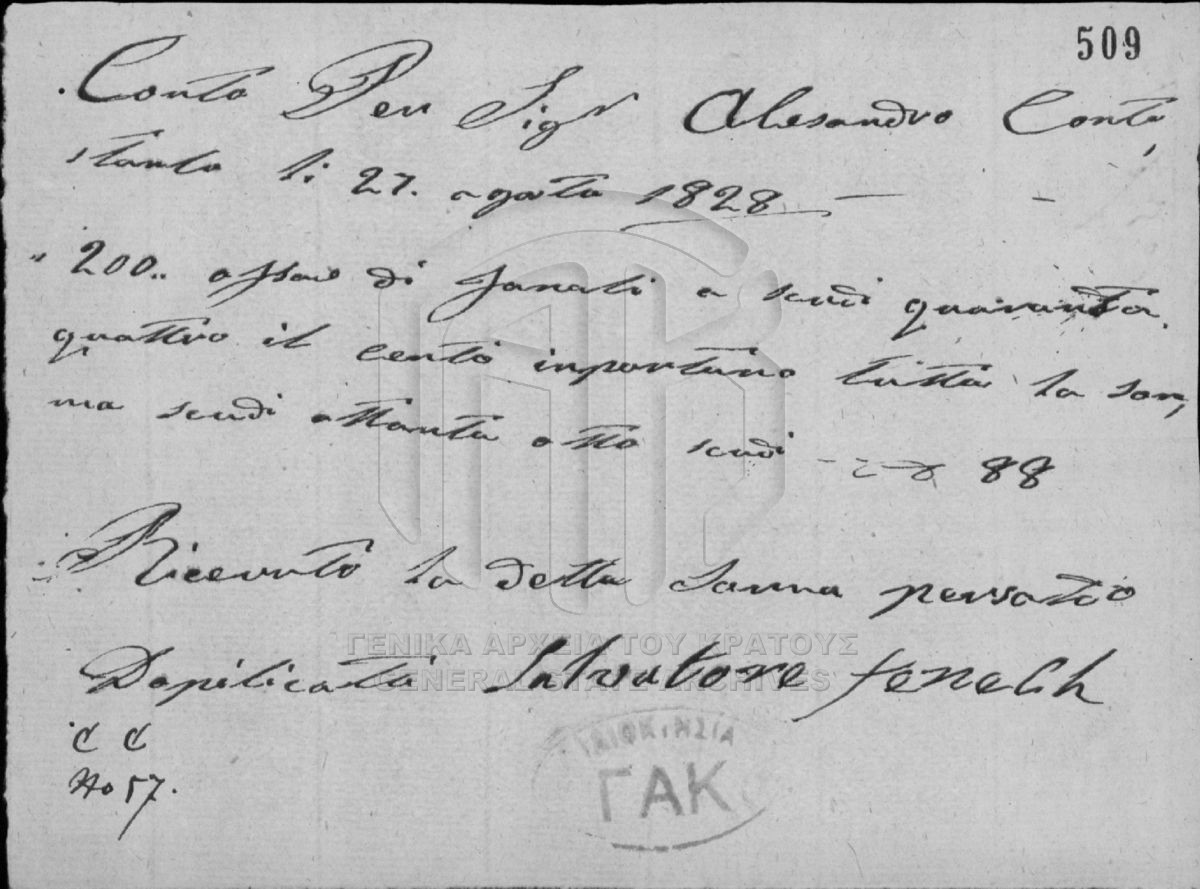 509
Conto Per Sigr Alesandro Conta,
stanto li 27. agosto 1828
" 200.. assaie di fanali a scudi quaranta
quattro il cento inportano tutta la som,
ma scudi ottanta otto scudi 88
Ricevuto la detta somma
Dopilicata Salvatore fenech
C C
No 57.
ΓΕΝΙΚΑ ΑΡΧΕΙΑ ΤΟΥ ΚΡΑΤΟΥΣ
GENERAL STATE ARCHIVES
ΓΑΚ